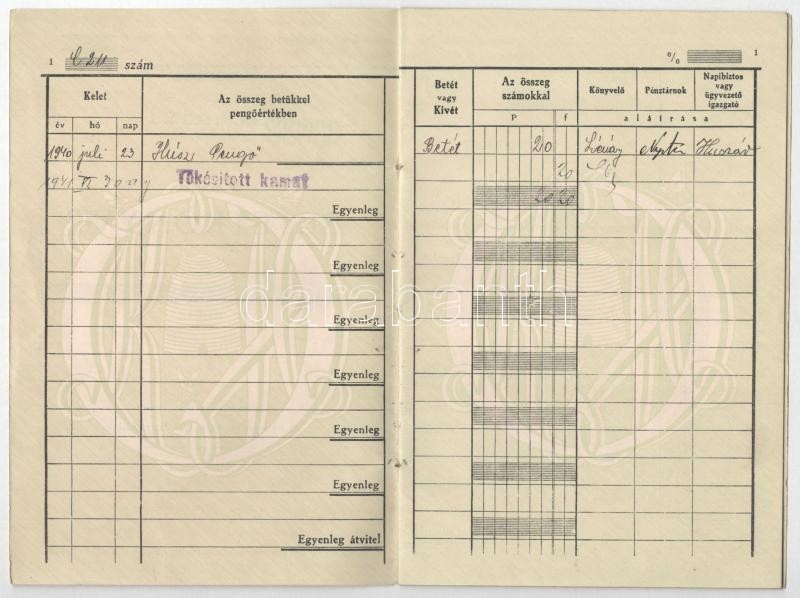 1 szám
% 1
Kelet
Az összeg betükkel
pengőértékben
év hó nap
Betét
vagy
Kivét
Az összeg
számokkal
P f
Könyvelő
Pénztárnok
Napibiztos
vagy
ügyvezető
igazgató
aláírása
1940 juli 23 Húsz Pengő Betét 20
1941 VI 30 Tőkésitett kamat 20
Egyenleg 20 20
Egyenleg
darabanth
Egyenleg
Egyenleg
Egyenleg
Egyenleg
Egyenleg átvitel